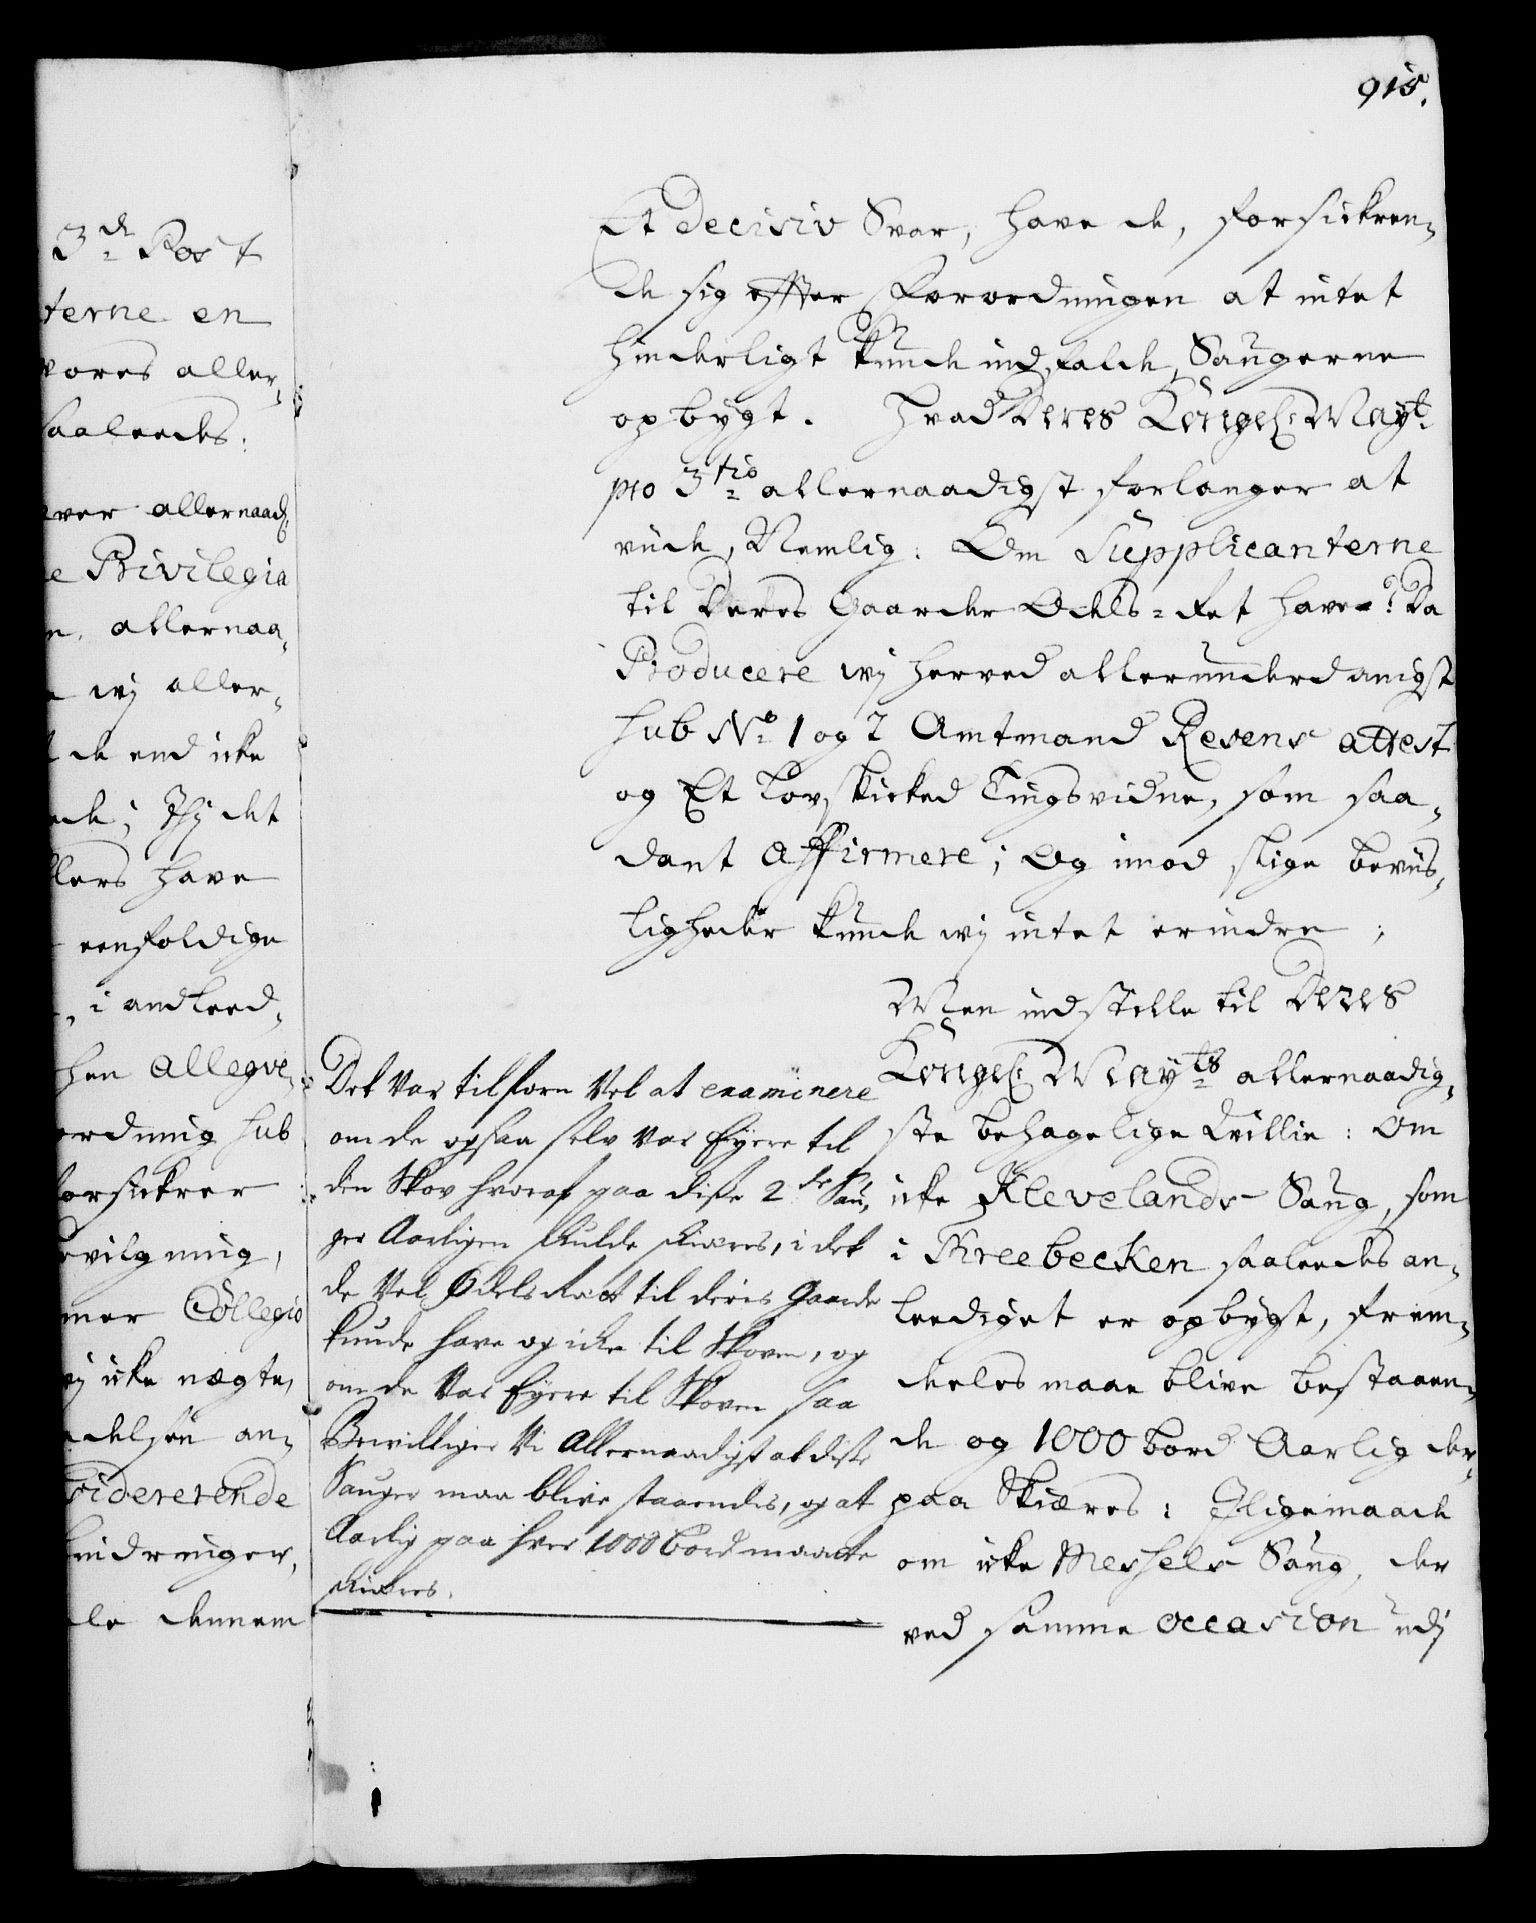 915.
3de Post
terne en
vores aller-
saaleedes:
ever allernaad:
e Privilegia
n, allernaa-
wj aller-
de end icke
ede; Thj det
llers have
eenfoldige
i andleed-
hen allegve-
ordning sub
forsickrer
evilgning,
mer Collegio
j icke nægte,
delsen an-
siderende
hindringer,
le dennem
Et decisiv Svar, have de, forsickren-
de sig efter Forordningen at intet
hinderligt kunde indfalde, Saugerne
opbygt. Hvad Deres Kongel: Mayt
pro 3tio allernaadigst forlanger at
viide, Nemlig: Om Supplicanterne
til Deres Gaarder Odels-Ret have? Da
Producere wj herved allerunderdanigst
sub No 1 og 2 Amtmand Resens attest
og Et Lovskicked Tingsvidne, som saa-
dant affirmere; Og imod slige beviis-
ligheder kunde wj intet erindre;
Men indstille til Deres
Kongel: Mayts allernaadig-
ste behagelige Willie: Om
icke Klevelands Saug, som
i Threebecken saaleedes an-
leediget er opbygt, frem-
deeles maae blive bestaaen-
de og 1000 bord Aarlig der-
paa Skiæres: Jligemaade
om icke Messels Saug, der
ved samme occasion udj
Det var tilforn Vel at examinere
om de ogsaa selv var Eyere til
den Skov hvoraf paa disse 2de Sau-
ger Aarligen skulde skiæres, i det
de Vel Odels Ræt til deris Gaarde
kunde have og icke til Skoven, og
om de Var Eyere til Skoven saa
Bevilliger Vi Allernaadigst at disse
Sauger maa blive staaendes, og at
Aarlig paa hver 1000 bord maatte
skiæres.